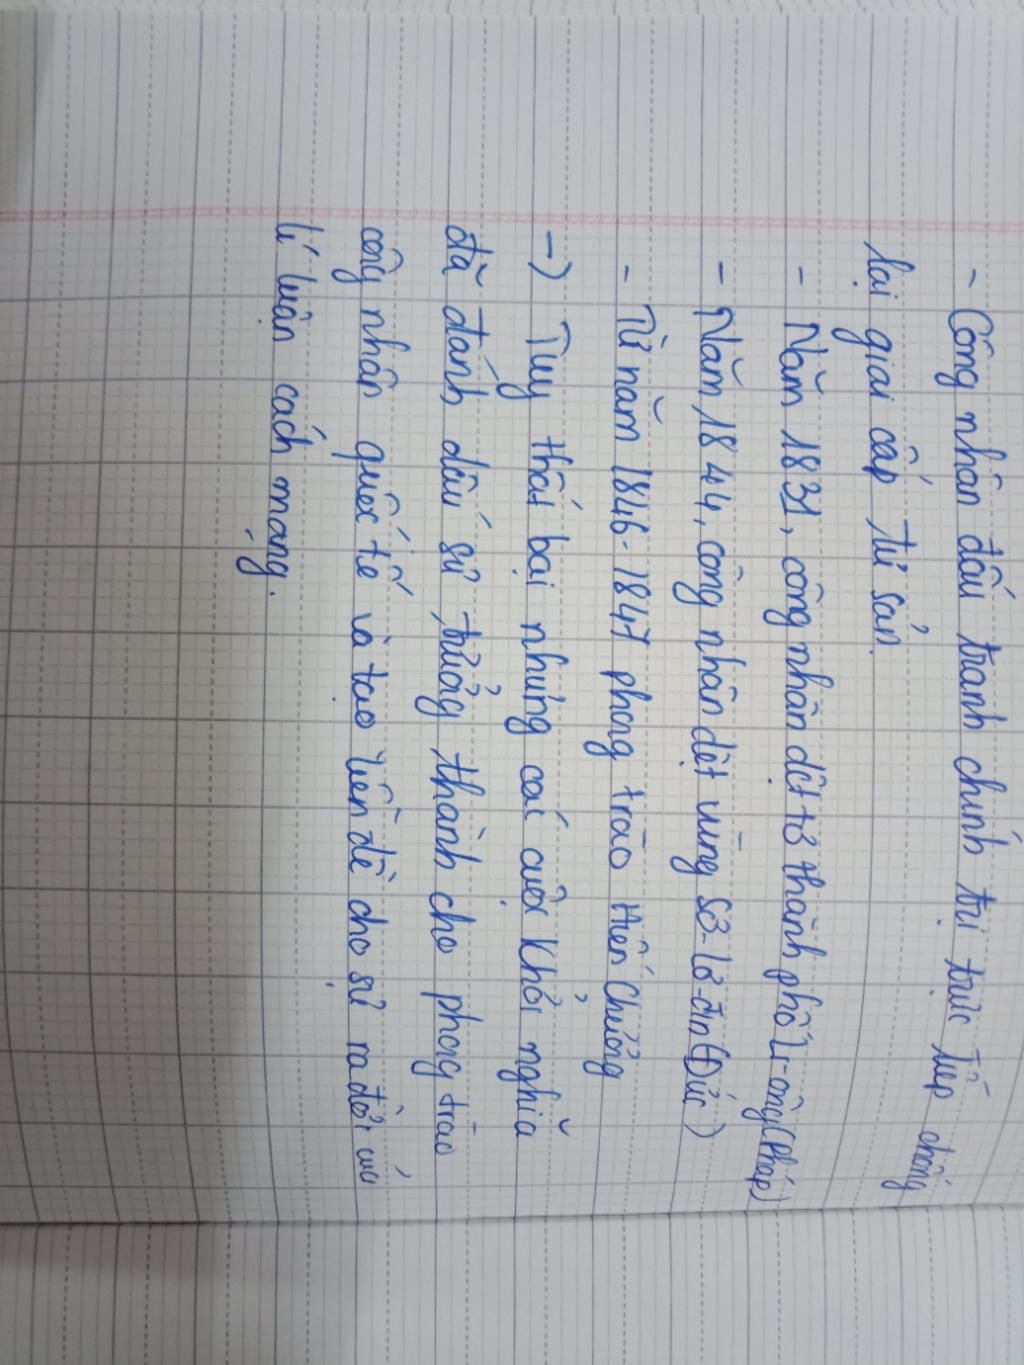 - Công nhân đấu tranh chính trị trực tiếp chống
lại giai cấp tư sản
- Năm 1831, công nhân dệt tơ thành phố Li-ông (Pháp)
- Năm 1844, công nhân dệt vùng Sơ-lê-din (Đức)
- Từ năm 1846-1847 phong trào Hiến Chương
→ Tuy thất bại nhưng các cuộc khởi nghĩa
đã đánh dấu sự trưởng thành cho phong trào
công nhân quốc tế và tạo tiền đề cho sự ra đời của
lí luận cách mạng.